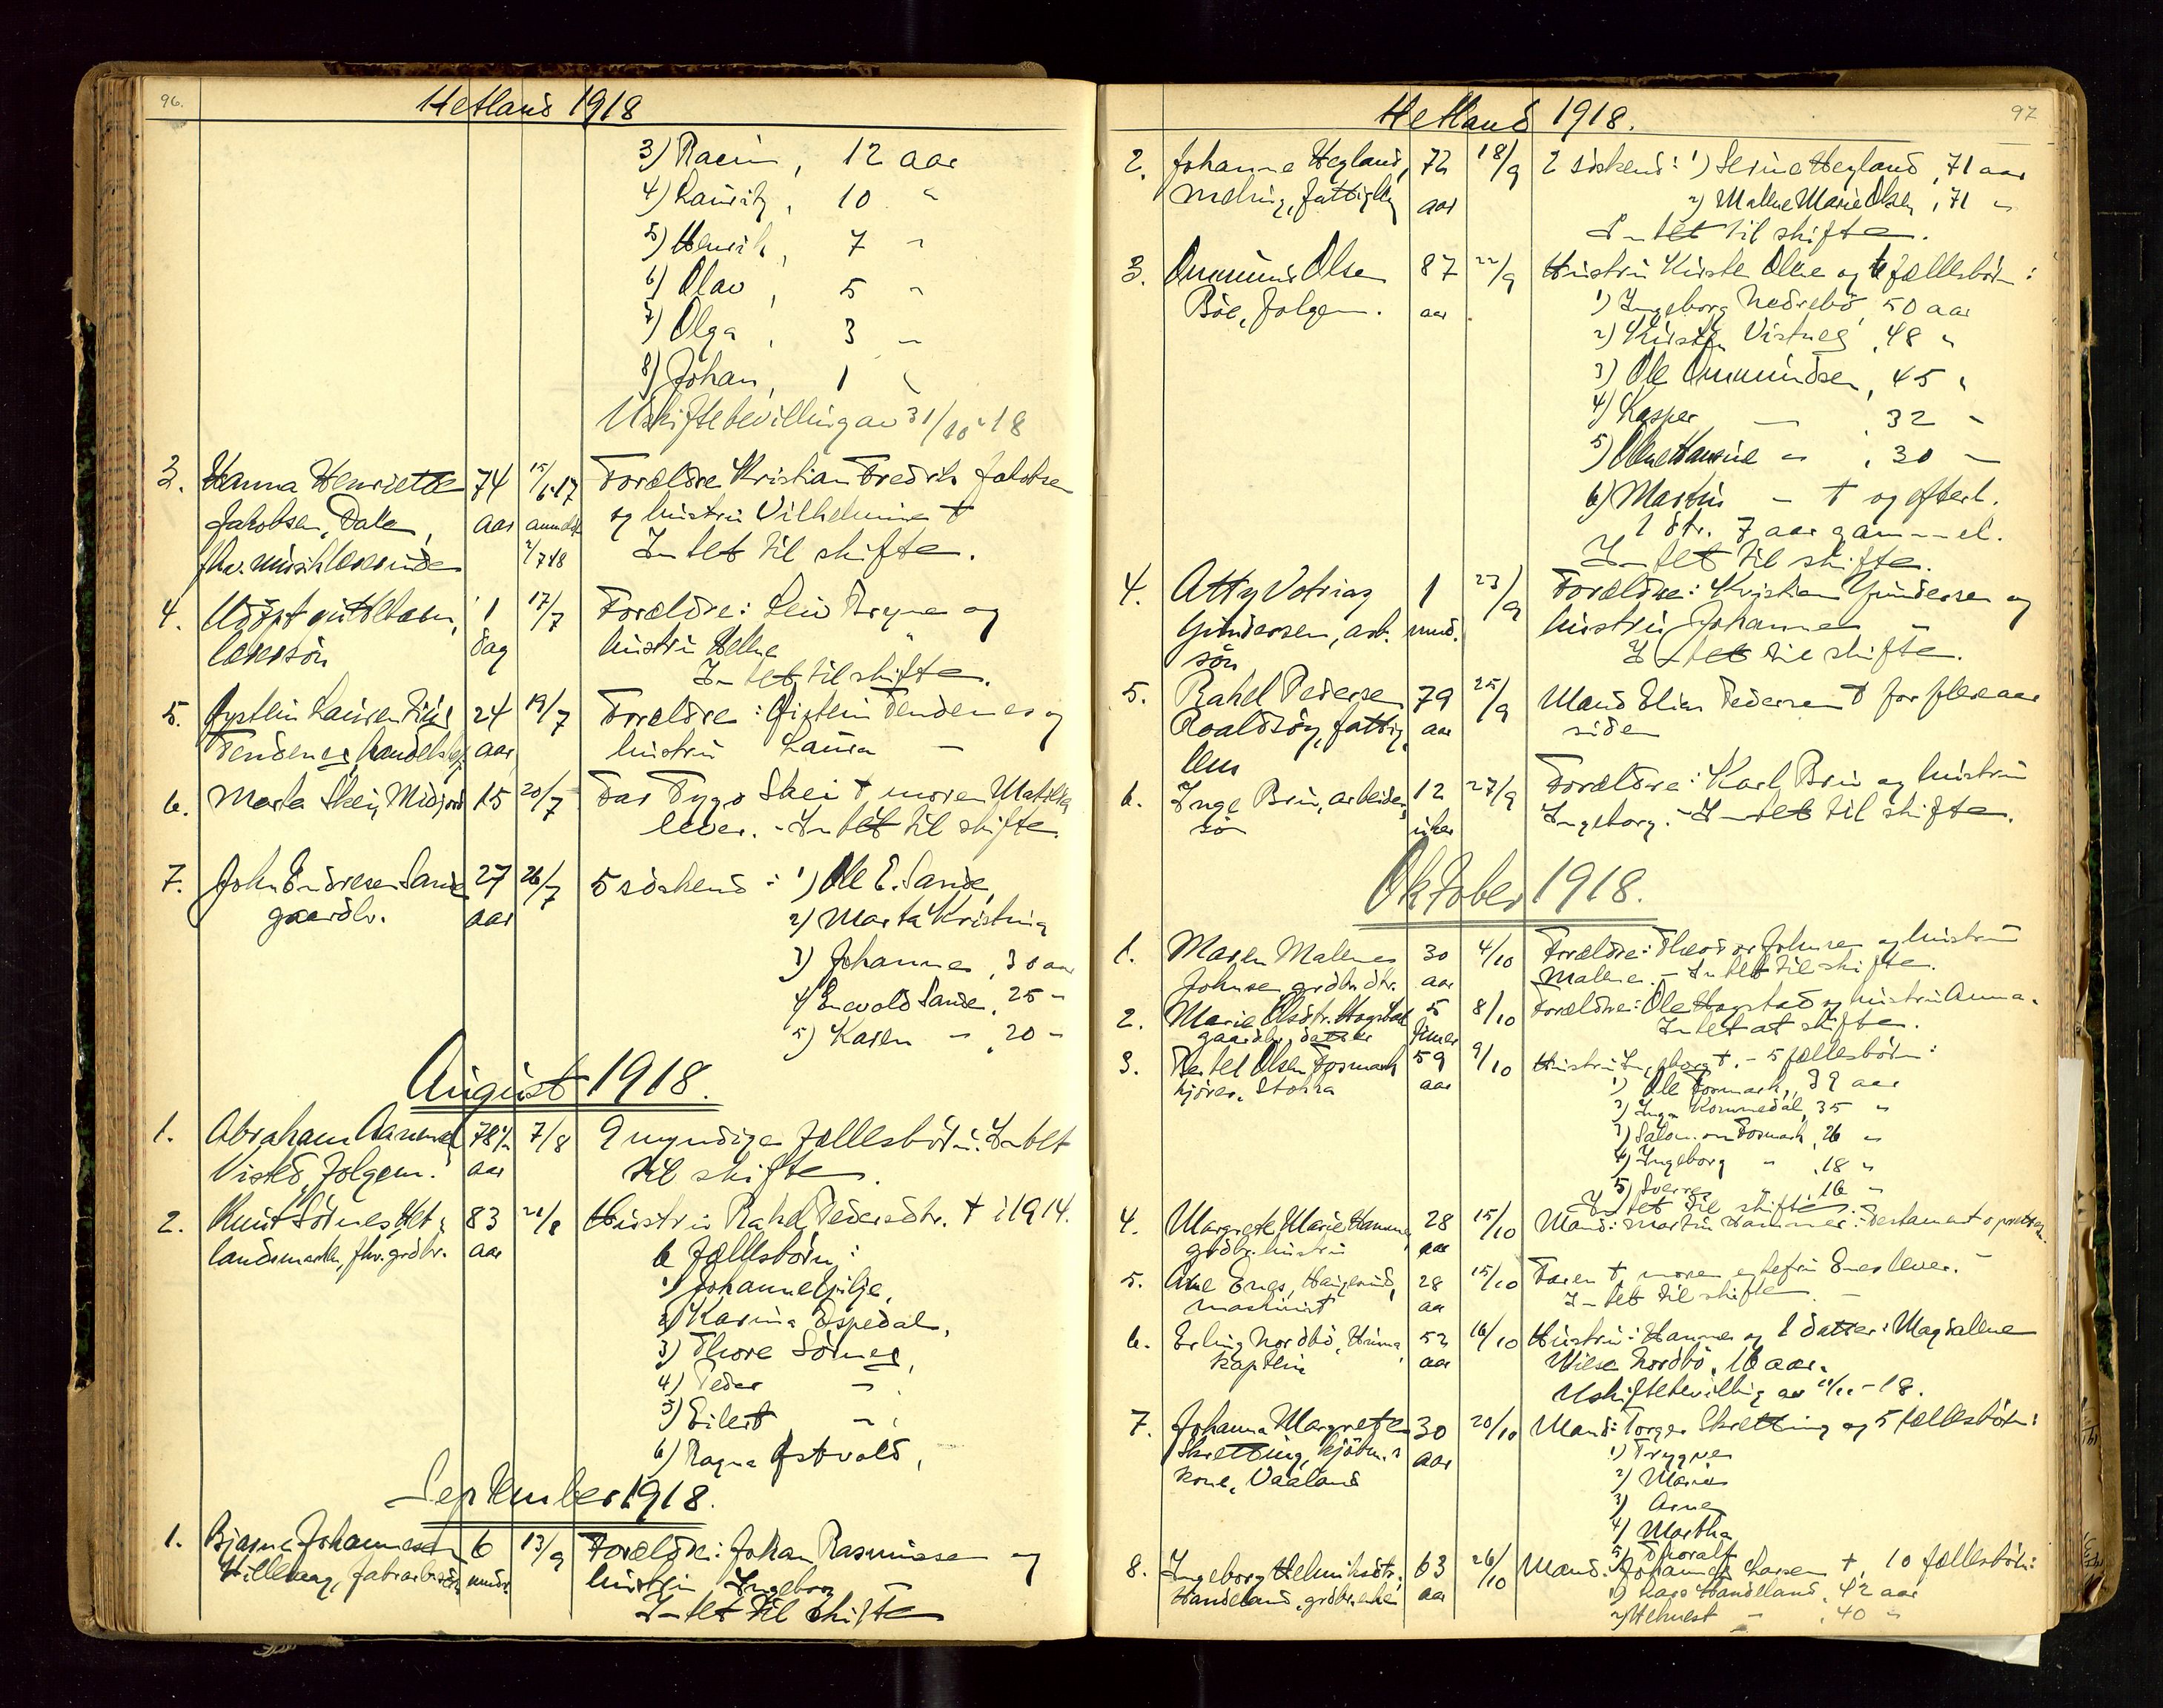 96.
Hetland 1918
3) Racin, 12 aar
4) Lauritz, 10 "
5) Henrik, 7 "
6) Olav, 5 "
7) Olga, 3 "
8) Johan, 1 "
Uskiftebevilling av 31/10-18
3. Hanna Henriette 74 15/6-17 Forældre Kristian Fredrik Jakobsen
Jakobsen, Dale, aar anmeldt og hustru Vilhelmine †
fhv. musiklærerinde 2/7-18 Intet til skifte.
4. Udöpt guttebarn, 1 17/7 Forældre: Leiv Bryne og
lærersön dag hustru Helene "
Intet til skifte.
5. Øystein Laurentius 24 19/7 Forældre: Øistein Tendenes og
Tendenes, handelsbetj. aar hustru Laura -
6. Marta Skei, Midjord 15 20/7 Far Tygo Skei † moren Matilda
lever. - Intet til skifte.
7. John Endresen Sande 27 26/7 5 söskend: 1) Ole E. Sande,
gaardbr. aar 2) Marta Kristina
3) Johanne, 30 aar
4) Enevald Sande, 25 -
5) Karen - , 20 -
August 1918.
1. Abraham 78½ 7/8 9 myndige fællesbörn. Intet
Visted, folgem. aar til skifte.
2. Knut Sömes, Het- 83 21/8 Hustru Rakel Pedersdtr. † i 1914.
landsmarken, fhv. grdbr. aar 6 fællesbörn:
1) Johanne Gilje,
2) Karina Espedal,
3) Thore Sömes,
4) Peder - ,
5) Eilert - ,
6) Ragna Østvold,
September 1918.
1. Bjarne Johannesen 6 13/9 Forældre: Johan Rasmussen og
Hillevaag, fabrarb. sön mndr. hustru Ingeborg
Intet til skifte
97
Hetland 1918.
2. Johanne Hegland, 72 18/9 2 söskend: 1) Serine Hegland, 71 aar
Meling, fattigl. aar 2) Malene Marie Olsen, 71 "
Intet til skifte.
3. Ommund Olsen 87 22/9 Hustru Kirsten Olsen og 6 fællesbörn:
Böe, folgem. aar 1) Ingeborg Nedrebö, 50 aar
2) Kirsten Vistnes, 48 "
3) Ole Ommundsen, 45 "
4) Kasper - , 32 -
5) Olene Hansine - , 30 -
6) Martin - † og efterl.
1 dtr. 7 aar gammel.
Intet til skifte.
4. 1 23/9 Forældre: Kristian Gundersen og
Gundersen, arb. mnd. hustru Johanne
sön Intet til skifte.
5. Rakel Pedersen 79 25/9 Mand Elias Pedersen † for flere aar
Roaldsöy, fattig- aar siden
lem
6. Inge Bru, arbeider- 12 27/9 Forældre: Karl Bru og hustru
sön uker Ingeborg. - Intet til skifte.
Oktober 1918.
1. Maren Malenes 30 4/10 Forældre: Theodor Johnsen og hustru
Johnsen grdbr. dtr. aar Malene. - Intet til skifte.
2. Marie Olsdtr. Hogstad 5 8/10 Forældre: Ole Hogstad og hustru Anna.
gaardbr. datter timer Intet at skifte.
3. Bertel Olsen Fosmark 59 9/10 Hustru Ingeborg †. - 5 fællesbörn:
kjörer, Stokka aar 1) Ole Fosmark, 39 aar
2) Inga Kommedal, 35 "
3) Salomon Fosmark, 26 "
4) Ingeborg " , 18 "
5) Sverre " , 16 "
Intet til skifte.
4. Margrete Marie Hammer, 28 15/10 Mand: Martin Hammer: Testament
grdbr. hustru aar
5. Enes, Haugesund, 28 15/10 Faren †, moren enkefru Enes lever.
maskinist aar Intet til skifte. -
6. Erling Nordbö, Hinna, 52 16/10 Hustru: Hanna og 1 datter: Magdalene
kaptein aar Wilse Nordbö, 16 aar.
Uskiftebevillig av 11/11-18.
7. Johanna Margrete 30 20/10 Mand: Torger Skretting og 5 fællesbörn:
Skretting, kjöbm.s aar 1) Trygve
kone, Vaaland 2) Marie
3) Arne
4) Martha
5) Thoralf
8. Ingeborg Helmiksdtr. 63 26/10 Mand: Johannes Larsen †, 10 fællesbörn:
Handeland, grdbr. enke aar 1) Lars Handeland, 42 aar
2) Helmest - , 40 "